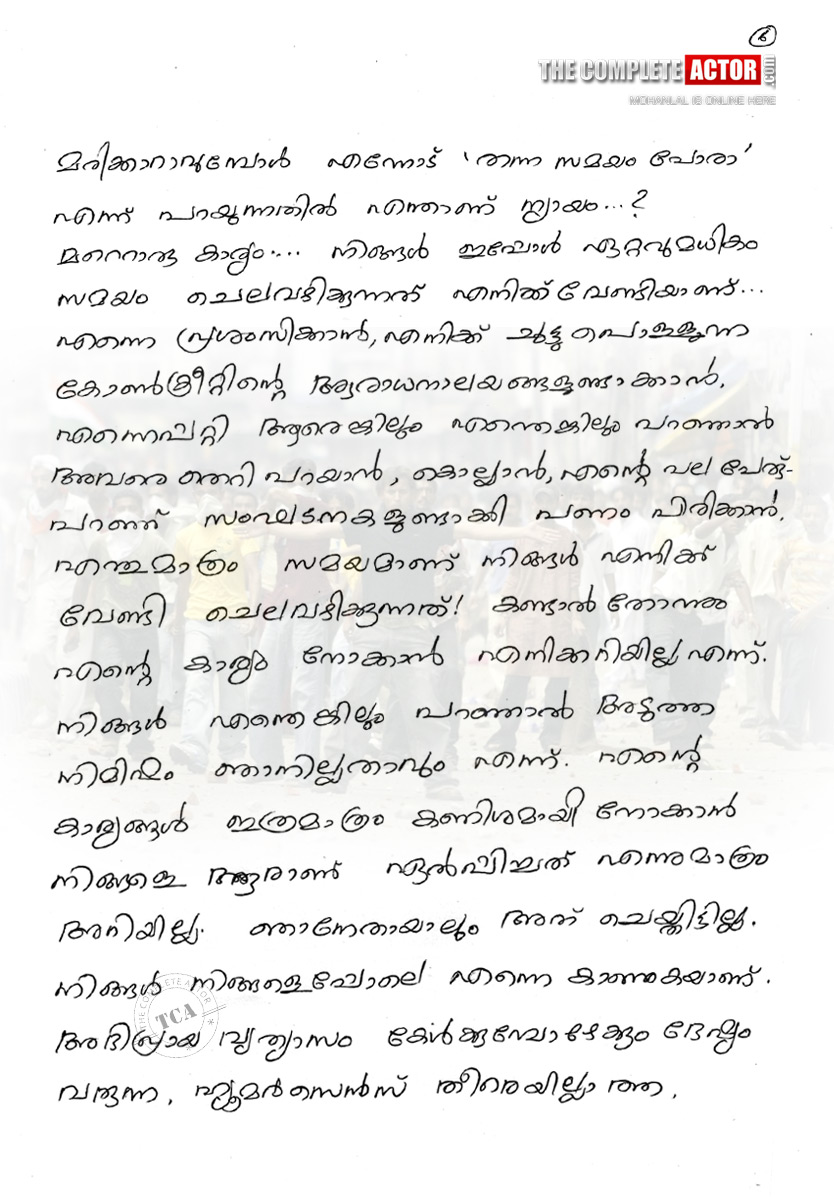 ൬
THE COMPLETE ACTOR .com
MOHANLAL IS ONLINE HERE
മരിക്കാറാവുമ്പോൾ എന്നോട് 'തന്ന സമയം പോരാ'
എന്ന് പറയുന്നതിൽ എന്താണ് ന്യായം...?
മറ്റൊരു കാര്യം.... നിങ്ങൾ ഇപ്പോൾ ഏറ്റവുമധികം
സമയം ചെലവഴിക്കുന്നത് എനിക്ക് വേണ്ടിയാണ്...
എന്നെ പ്രശംസിക്കാൻ, എനിക്ക് ചുട്ടുപൊള്ളുന്ന
കോൺക്രീറ്റിന്റെ ആരാധനാലയങ്ങളുണ്ടാക്കാൻ.
എന്നെപ്പറ്റി ആരെങ്കിലും എന്തെങ്കിലും പറഞ്ഞാൽ
അവരെ തെറി പറയാൻ, കൊല്ലാൻ, എന്റെ പല പേരു-
പറഞ്ഞ് സംഘടനകളുണ്ടാക്കി പണം പിരിക്കാൻ.
എന്തുമാത്രം സമയമാണ് നിങ്ങൾ എനിക്ക്
വേണ്ടി ചെലവഴിക്കുന്നത്! കണ്ടാൽ തോന്നും
എന്റെ കാര്യം നോക്കാൻ എനിക്കറിയില്ല എന്ന്.
നിങ്ങൾ എന്തെങ്കിലും പറഞ്ഞാൽ അടുത്ത
നിമിഷം ഞാനില്ലാതാവും എന്ന്. എന്റെ
കാര്യങ്ങൾ ഇത്രമാത്രം കണിശമായി നോക്കാൻ
നിങ്ങളെ ആരാണ് ഏൽപ്പിച്ചത് എന്നുമാത്രം
അറിയില്ല. ഞാനേതായാലും അത് ചെയ്തിട്ടില്ല.
നിങ്ങൾ നിങ്ങളെപ്പോലെ എന്നെ കാണുകയാണ്.
അഭിപ്രായ വ്യത്യാസം കേൾക്കുമ്പോഴേക്കും ദേഷ്യം
വരുന്ന, ഹ്യൂമർസെൻസ് തീരെയില്ലാത്ത,
THE COMPLETE ACTOR
TCA